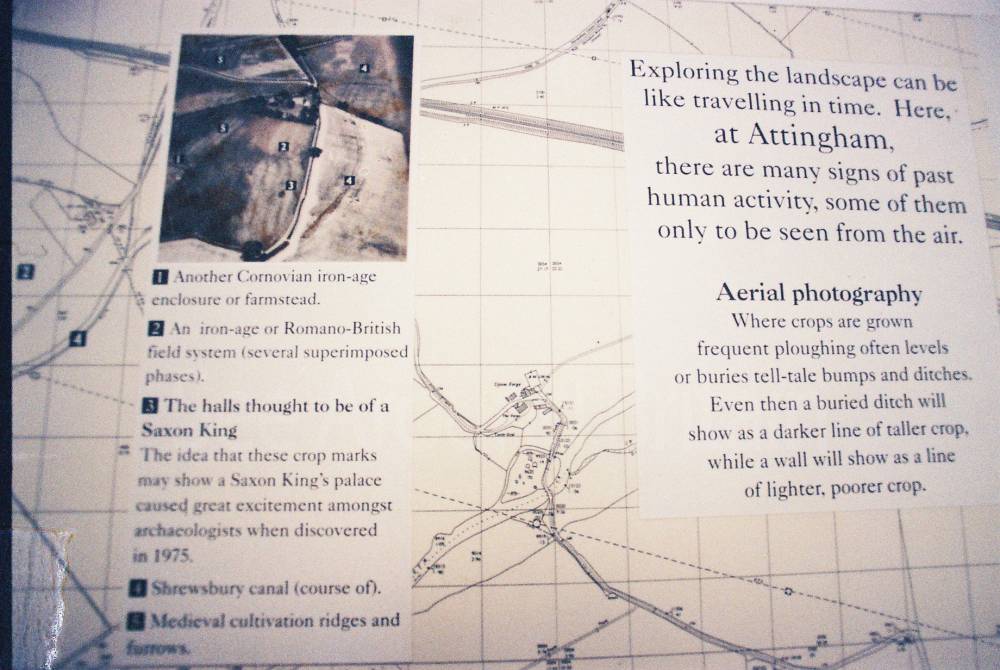 5
4
5
2
1
3
4
1 Another Cornovian iron-age
enclosure or farmstead.
2 An iron-age or Romano-British
field system (several superimposed
phases).
3 The halls thought to be of a
Saxon King
The idea that these crop marks
may show a Saxon King's palace
caused great excitement amongst
archaeologists when discovered
in 1975.
4 Shrewsbury canal (course of).
5 Medieval cultivation ridges and
furrows.
2
4
Upton Forge
Exploring the landscape can be
like travelling in time. Here,
at Attingham,
there are many signs of past
human activity, some of them
only to be seen from the air.
Aerial photography
Where crops are grown
frequent ploughing often levels
or buries tell-tale bumps and ditches.
Even then a buried ditch will
show as a darker line of taller crop,
while a wall will show as a line
of lighter, poorer crop.